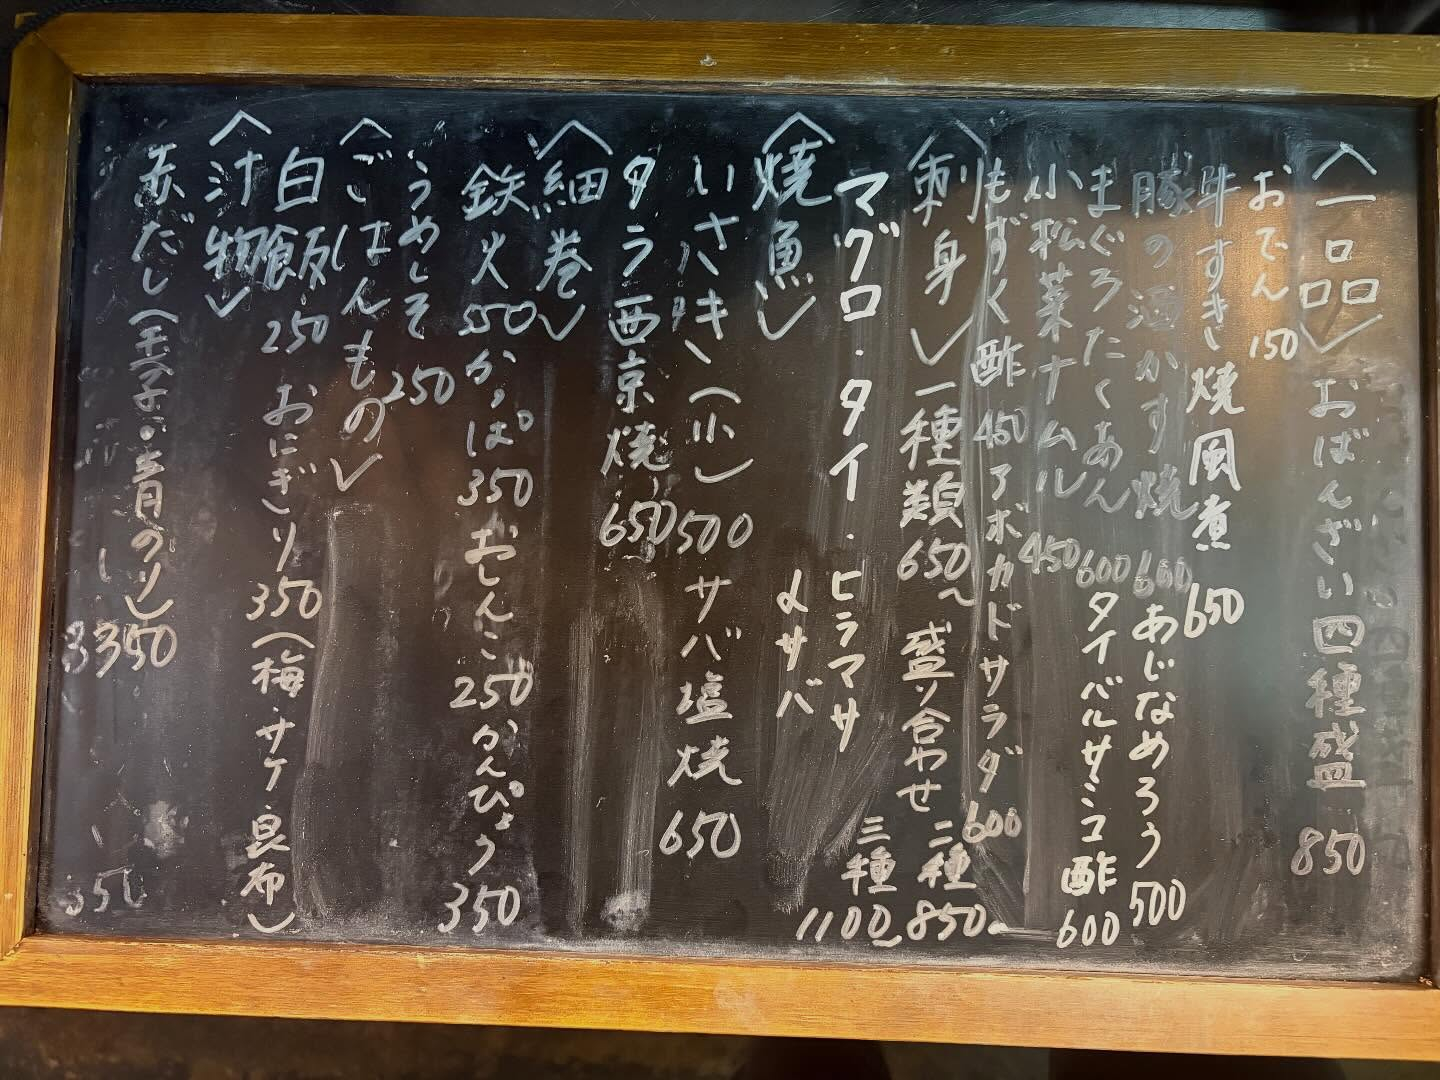 〈一品〉おばんざい四種盛 850
おでん 150
牛すき焼風煮 650
豚の酒かす焼 600 あじなめろう 500
まぐろたくあん 600 タイバルサミコ酢 600
小松菜ナムル 450
もずく酢 450 アボカドサラダ 600
〈刺身〉一種類 650〜 盛り合わせ 二種 850〜
三種 1100〜
マグロ・タイ・ヒラマサ
〆サバ
〈焼魚〉
いさき(小) 500 サバ塩焼 650
タラ西京焼 650
〈細巻〉
鉄火 550 かっぱ 350 おしんこ 250 かんぴょう 350
うめしそ 250
〈ごはんもの〉
白飯 250 おにぎり 350 (梅・サケ・昆布)
〈汁物〉
赤だし(玉子・青のり) 350
350